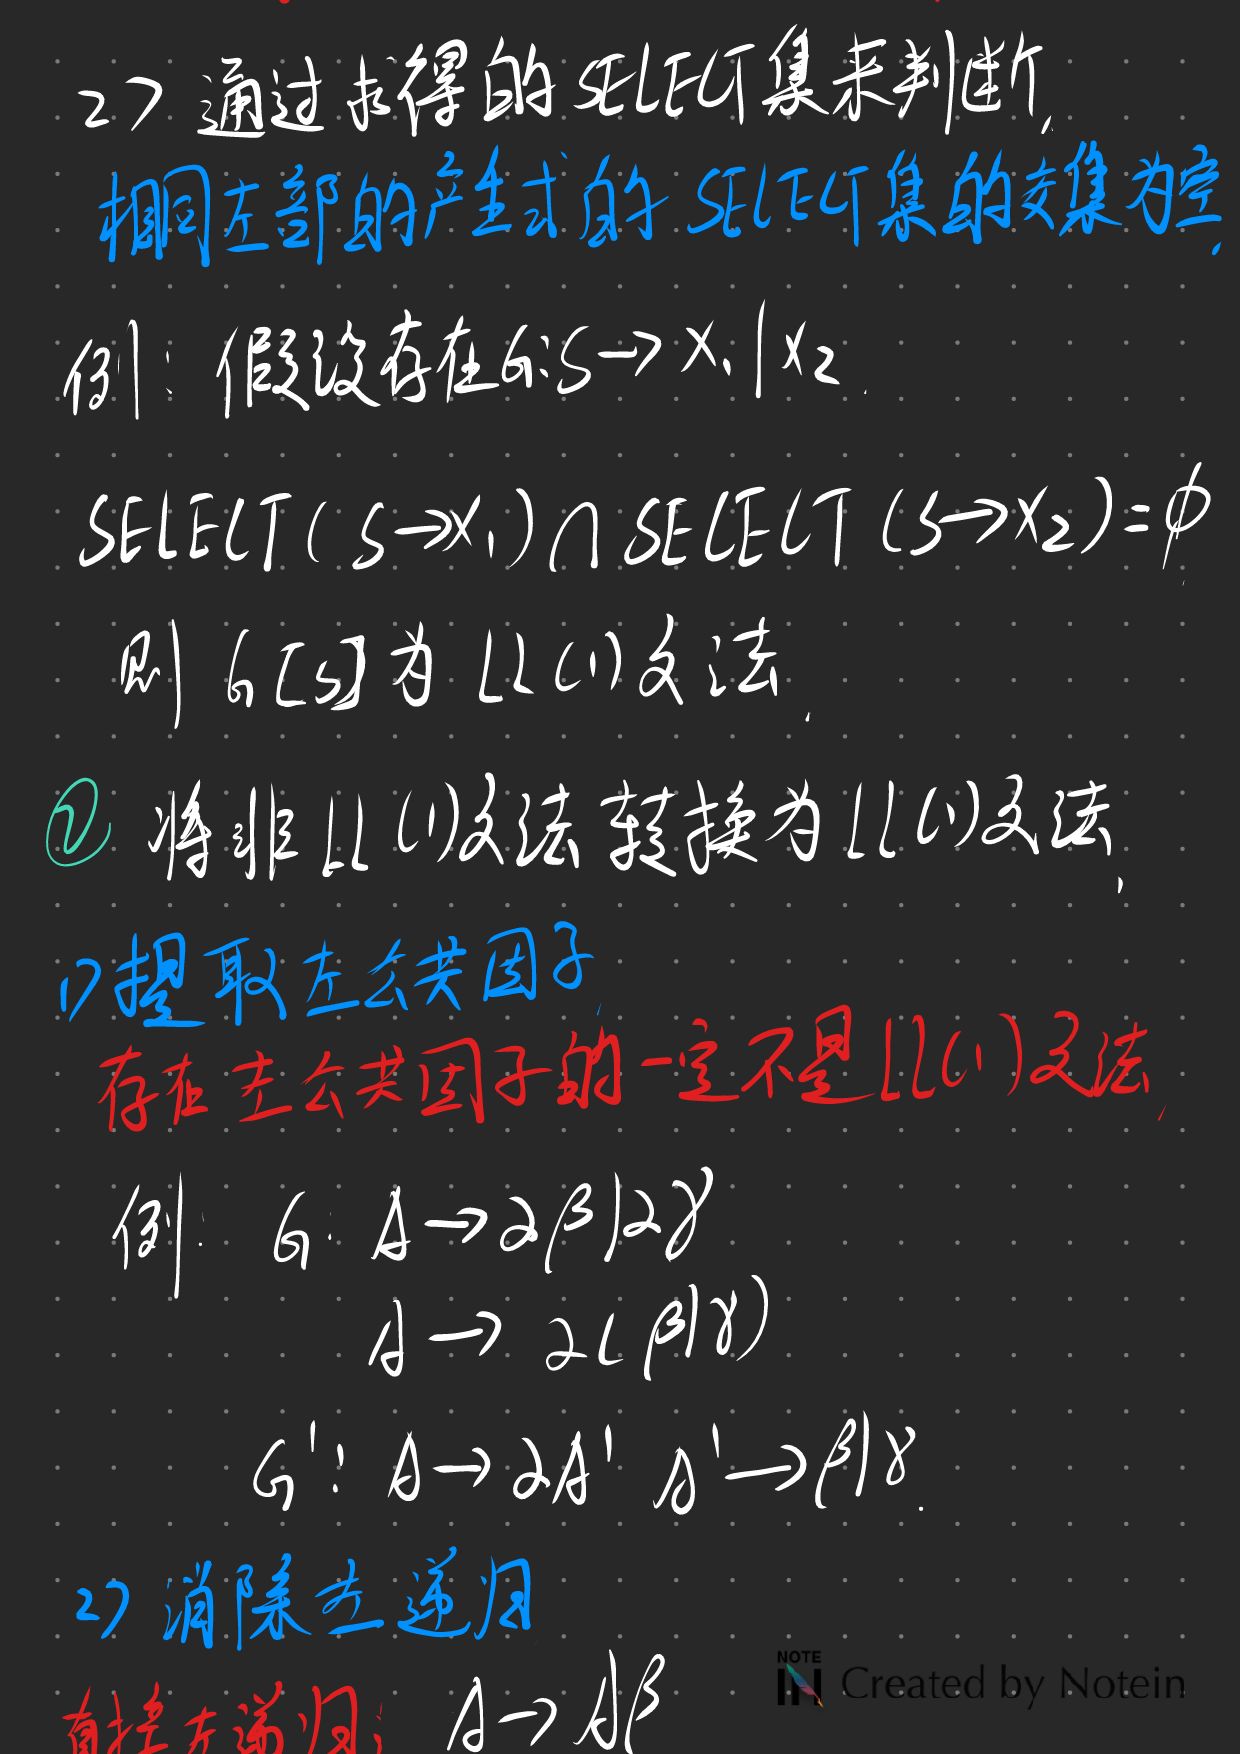 2) 通过求得的SELECT集来判断.
相同左部的产生式的SELECT集的交集为空.
例: 假设存在G:S→X₁|X₂.
SELECT(S→X₁)∩SELECT(S→X₂)=φ
则G[S]为LL(1)文法.
② 将非LL(1)文法转换为LL(1)文法.
1)提取左公共因子.
存在左公共因子的一定不是LL(1)文法.
例: G: A→αβ|αγ
A→α(β|γ)
G': A→αA' A'→β|γ.
2) 消除左递归
直接左递归: A→Aβ
NOTE
IN Created by Notein